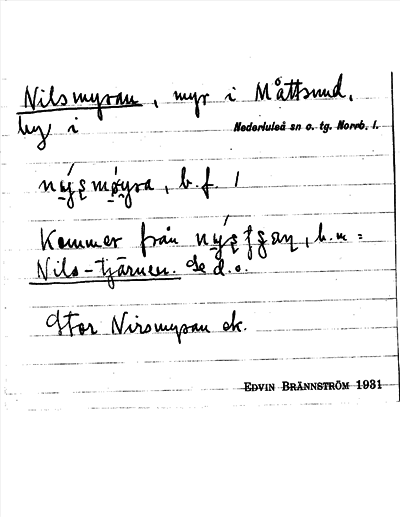 Nilsmyran, myr i Måttsund,
by i Nederluleå sn o. tg. Norrb. l.
b.f. /
Kommer från b.m =
Nils-tjärnen. Se d.o.
Stor Nirsmyran ek.
EDVIN BRÄNNSTRÖM 1931